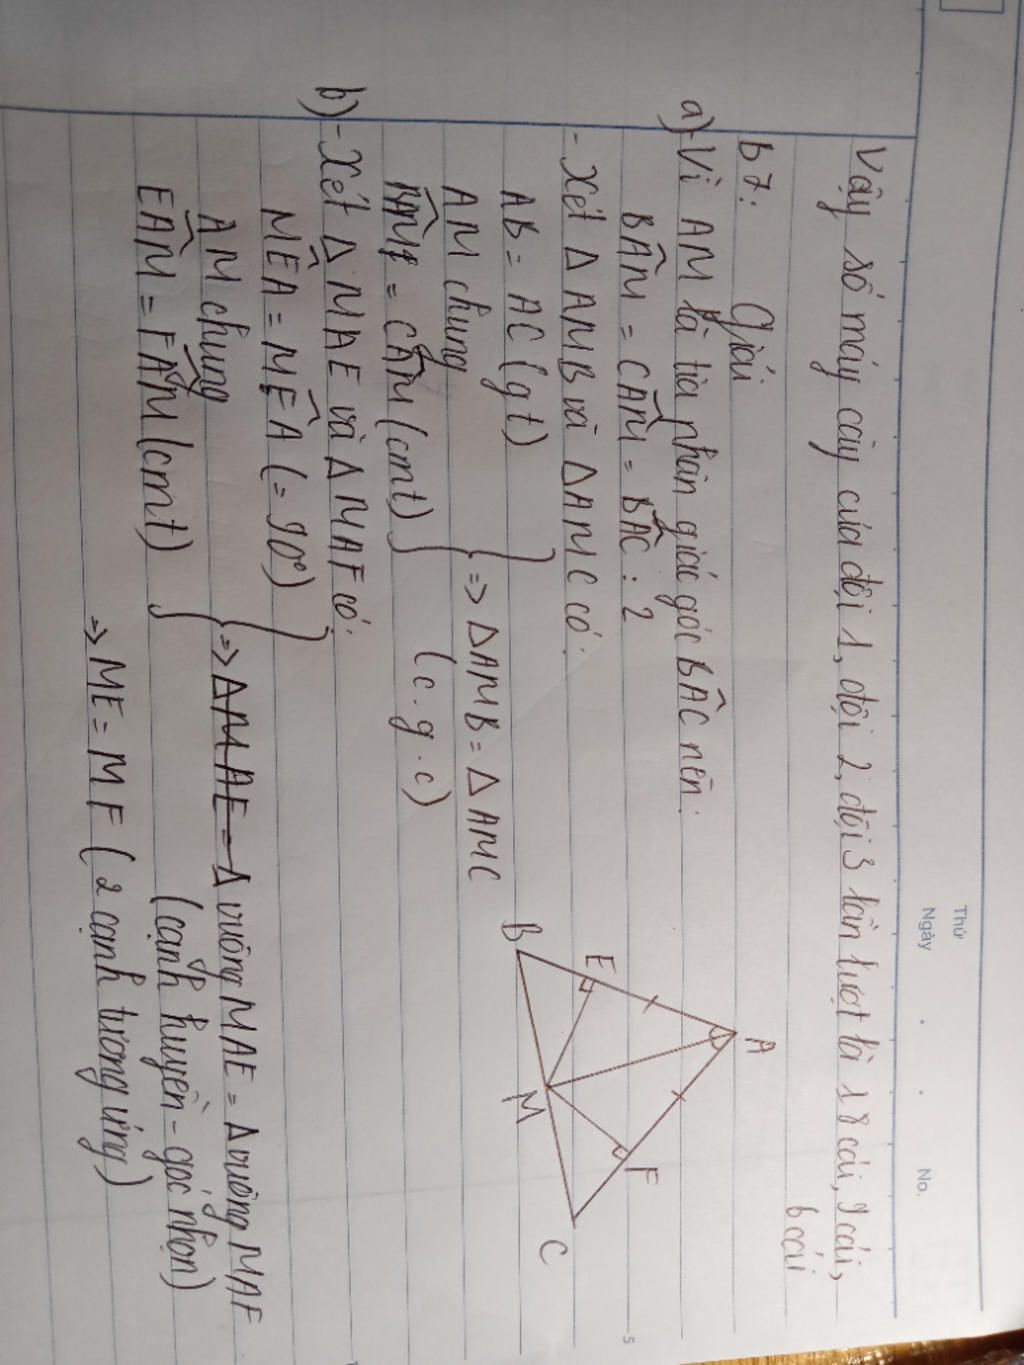 Thứ
Ngày
No.
Vậy số máy cày của đội 1, đội 2, đội 3 lần lượt là 18 cái, 9 cái,
6 cái
b7: Giải
a) - Vì AM là tia phân giác góc BAC nên:
BAM = CAM = BAC : 2
- Xét Δ AMB và Δ AMC có:
AB = AC (gt)
AM chung
BAM = CAM (cmt)
=> ΔAMB = Δ AMC
(c.g.c)
A
B
E
M
F
C
b) - Xét Δ MAE và Δ MAF có:
MEA = MFA (= 90°)
AM chung
EAM = FAM (cmt)
=> ΔMAE = Δ vuông MAE = Δ vuông MAF
(cạnh huyền - góc nhọn)
=> ME = MF (2 cạnh tương ứng)
5